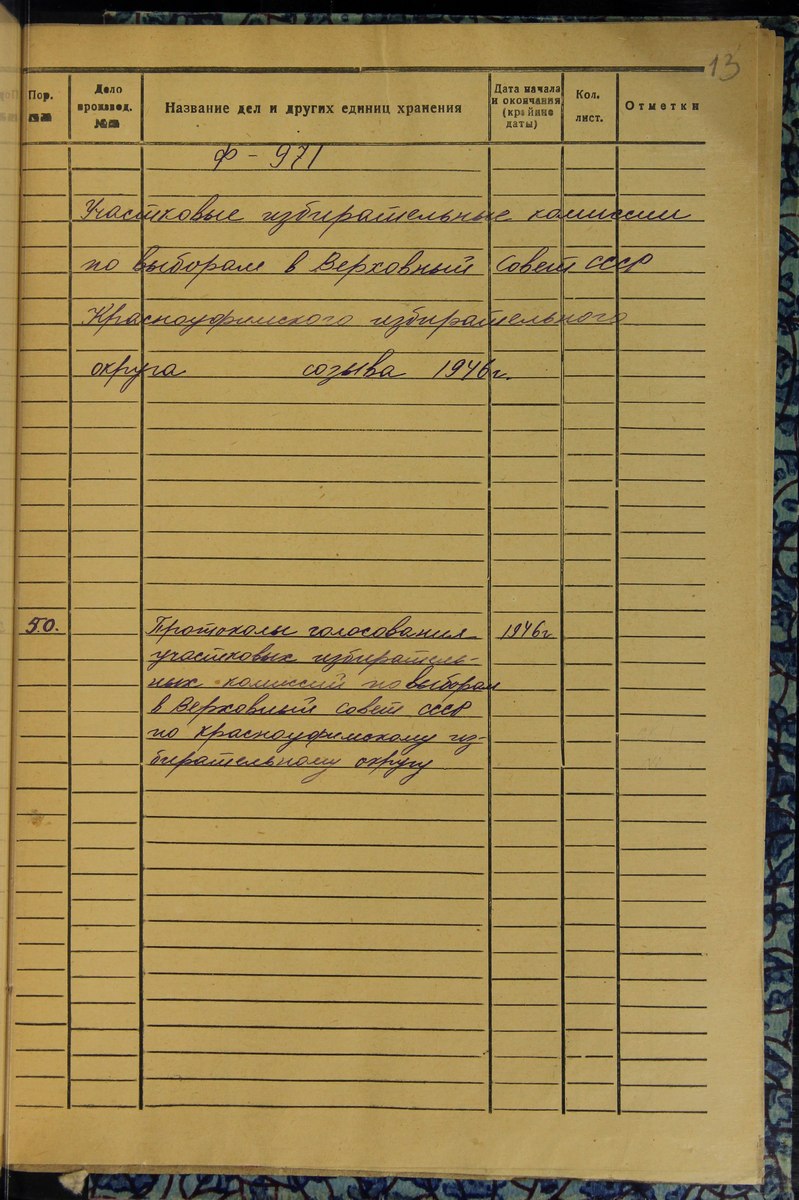 13
Пор. №№
Дело производ. №№
Название дел и других единиц хранения
Дата начала и окончания (крайние даты)
Кол. лист.
Отметки
Ф - 971
Участковые избирательные комиссии
по выборам в Верховный Совет СССР
Красноуфимского избирательного
округа созыва 1946 г.
50. Протоколы голосования 1946 г.
участковых избиратель-
ных комиссий по выборам
в Верховный Совет СССР
по Красноуфимскому из-
бирательному округу